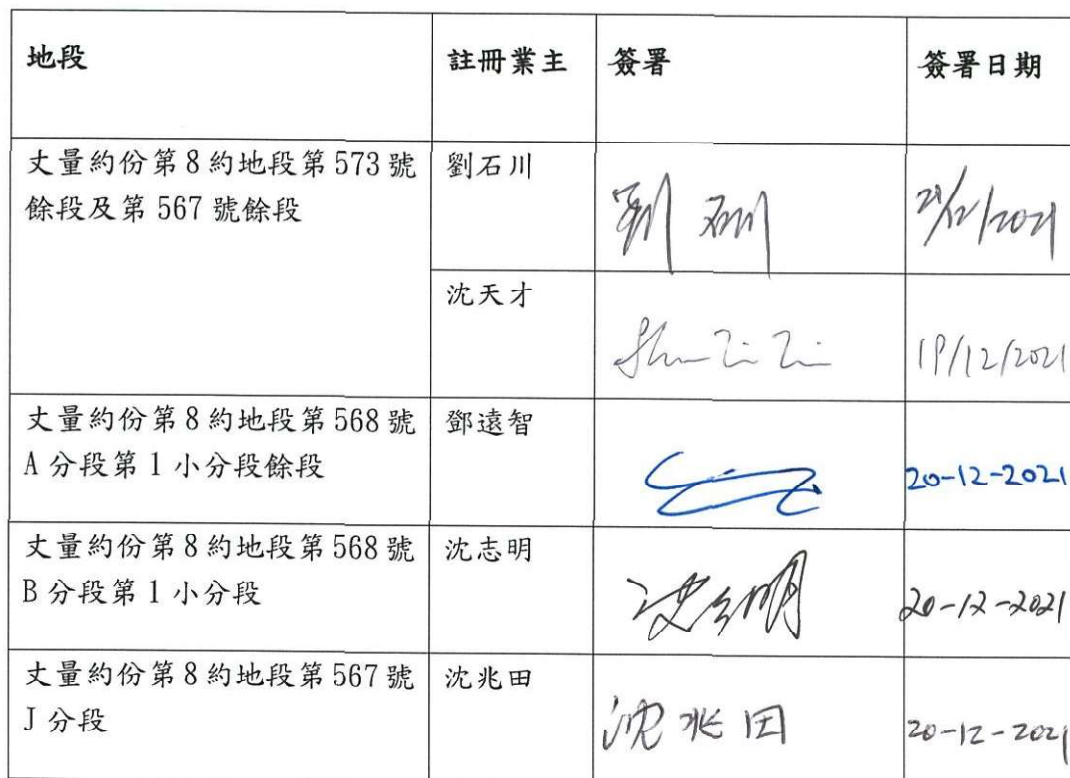 地段 註冊業主 簽署 簽署日期
丈量約份第8約地段第573號 劉石川
餘段及第567號餘段 劉石川 21/12/2021
沈天才
19/12/2021
丈量約份第8約地段第568號 鄧遠智
A分段第1小分段餘段 20-12-2021
丈量約份第8約地段第568號 沈志明
B分段第1小分段 沈志明 20-12-2021
丈量約份第8約地段第567號 沈兆田
J分段 沈兆田 20-12-2021